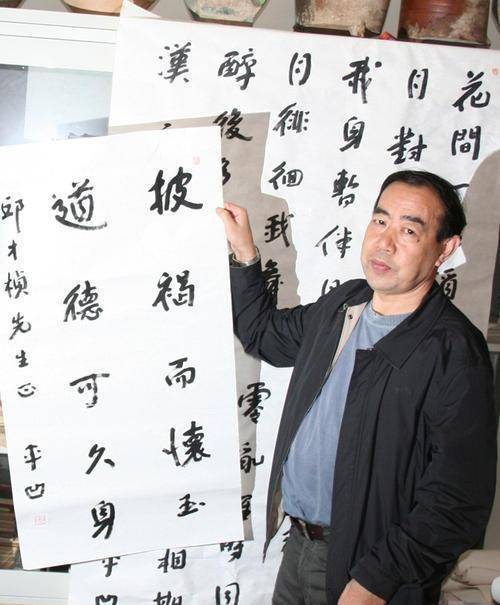 花間
月對
我身暫伴
月徘徊我舞零亂醒時同
醉後各
相期
漢
披褐而懷玉
道德可久身
邱才楨先生正 平凹